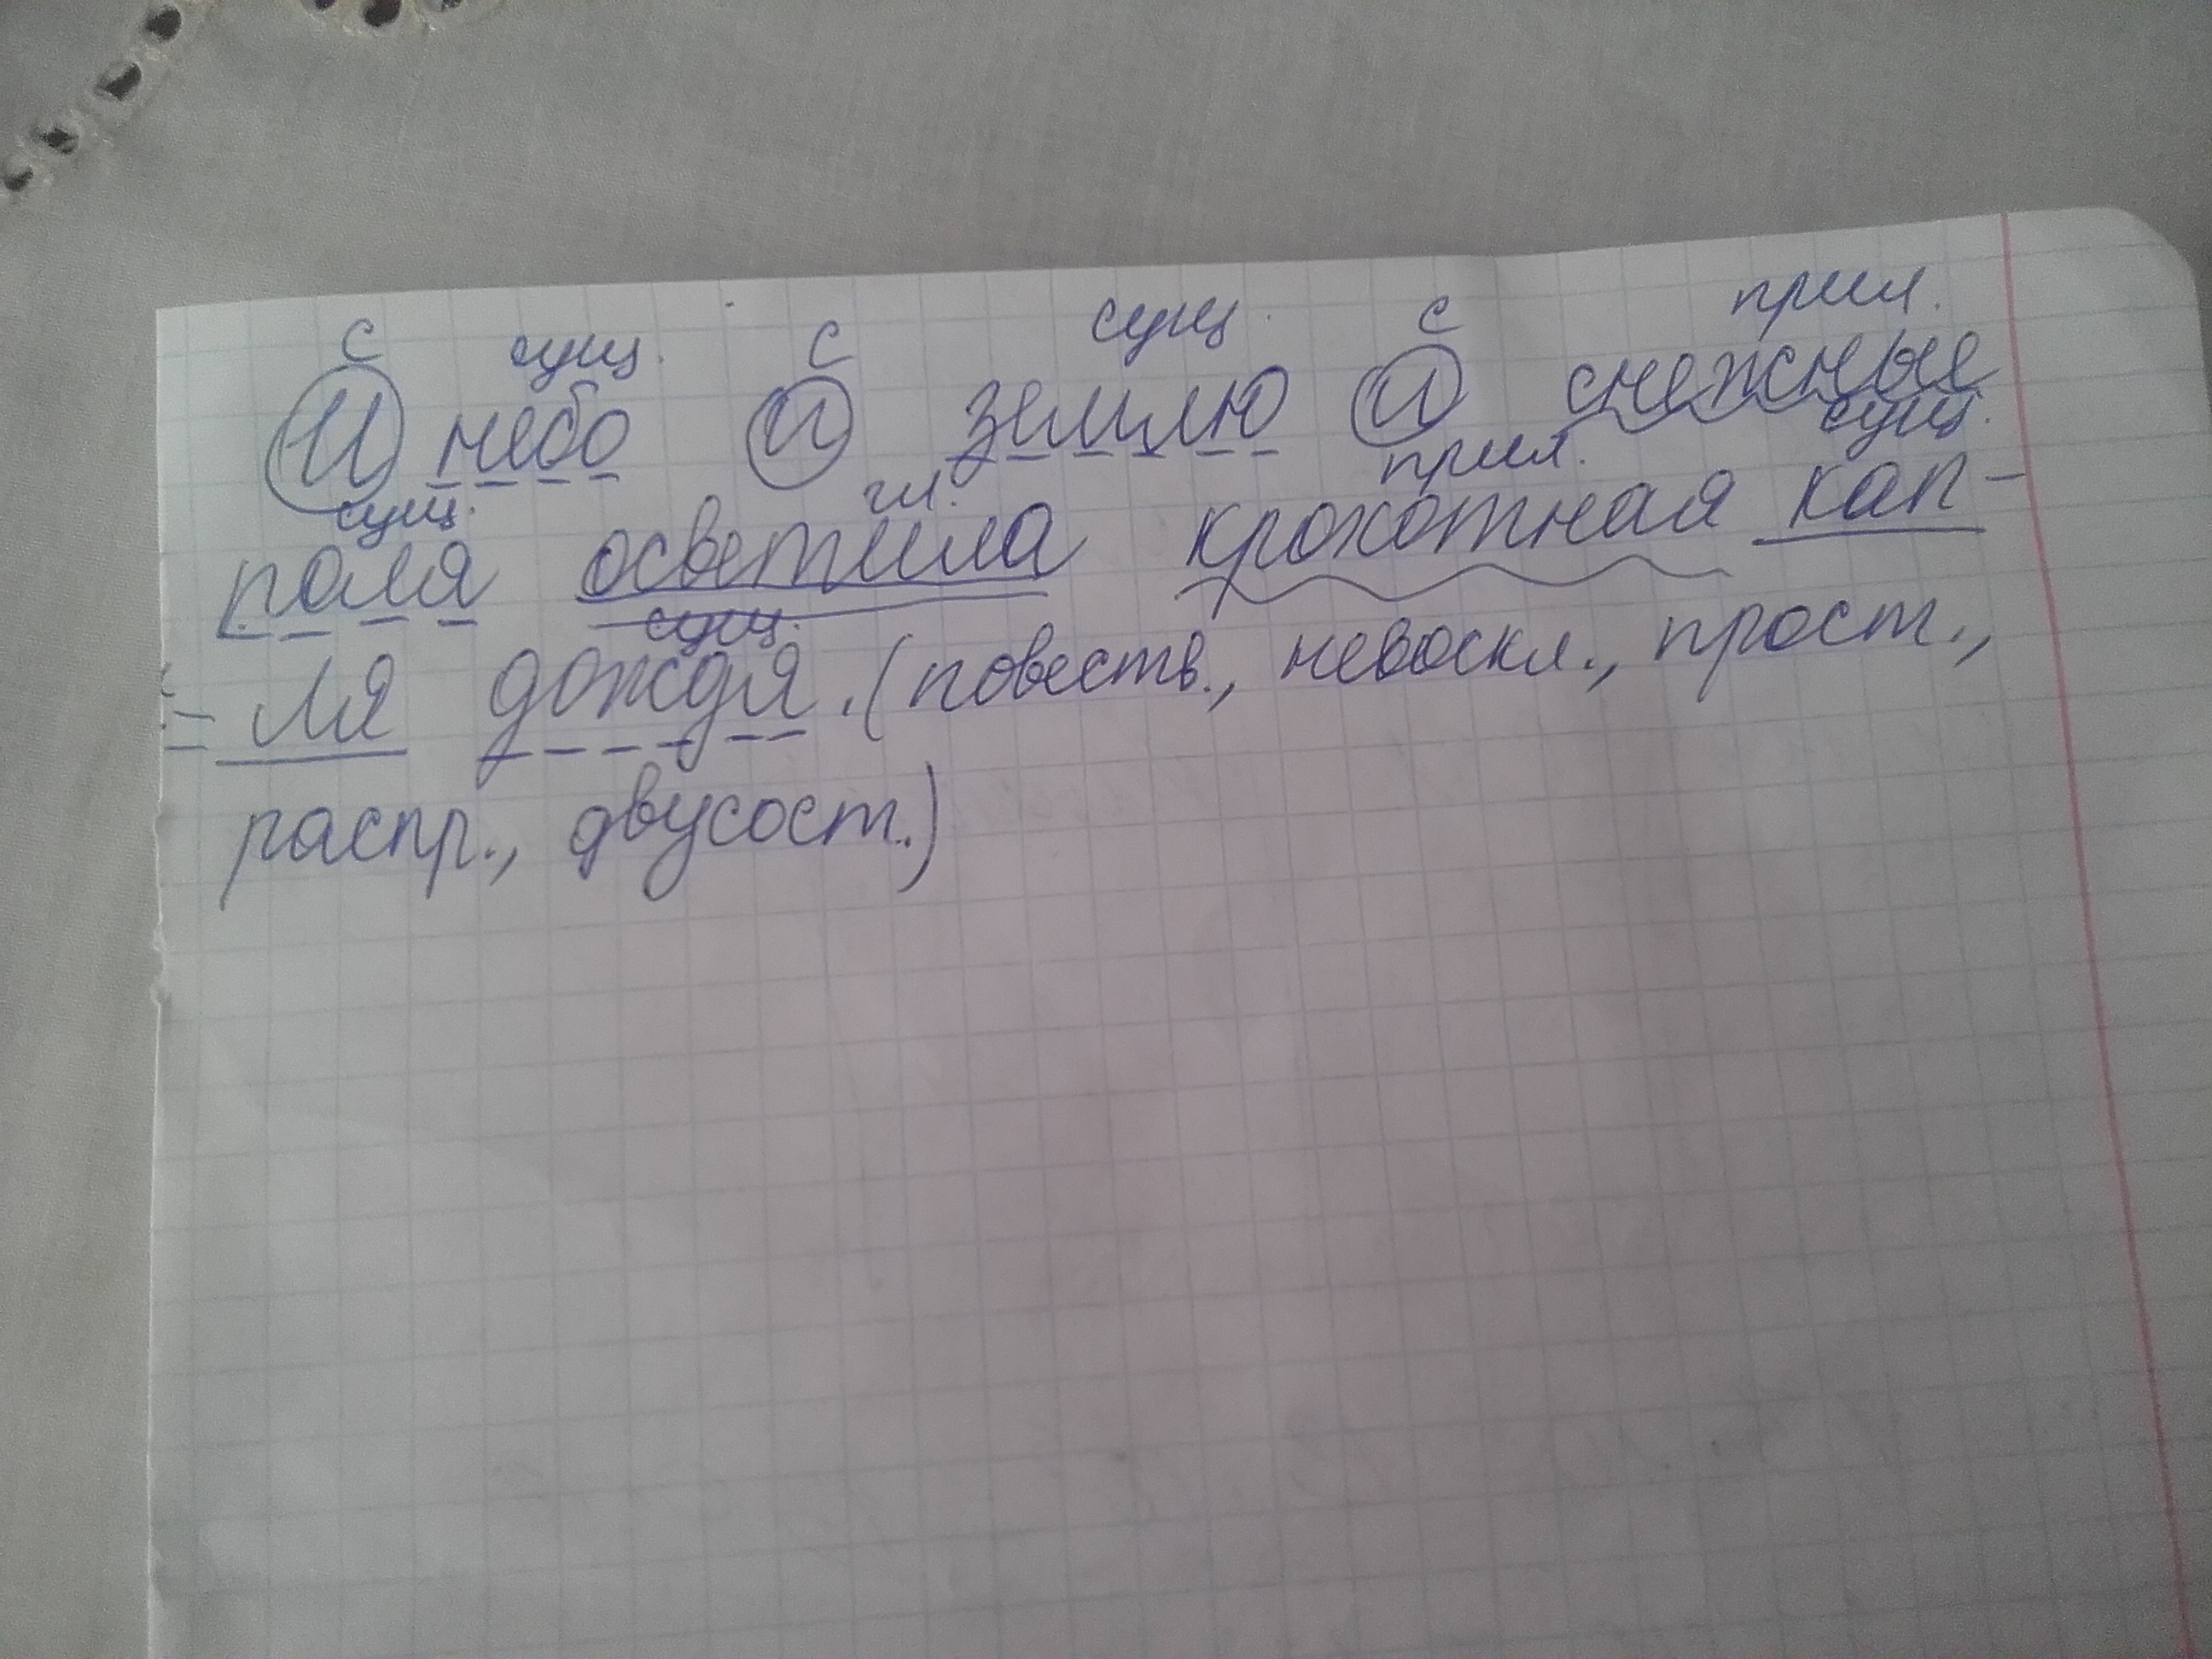 с сущ. с сущ. с прил.
И небо и землю и снежные
сущ. гл. прил. сущ.
поля осветила крохотная кап-
сущ.
- ля дождя. (повеств., невоскл., прост.,
распр., двусост.)